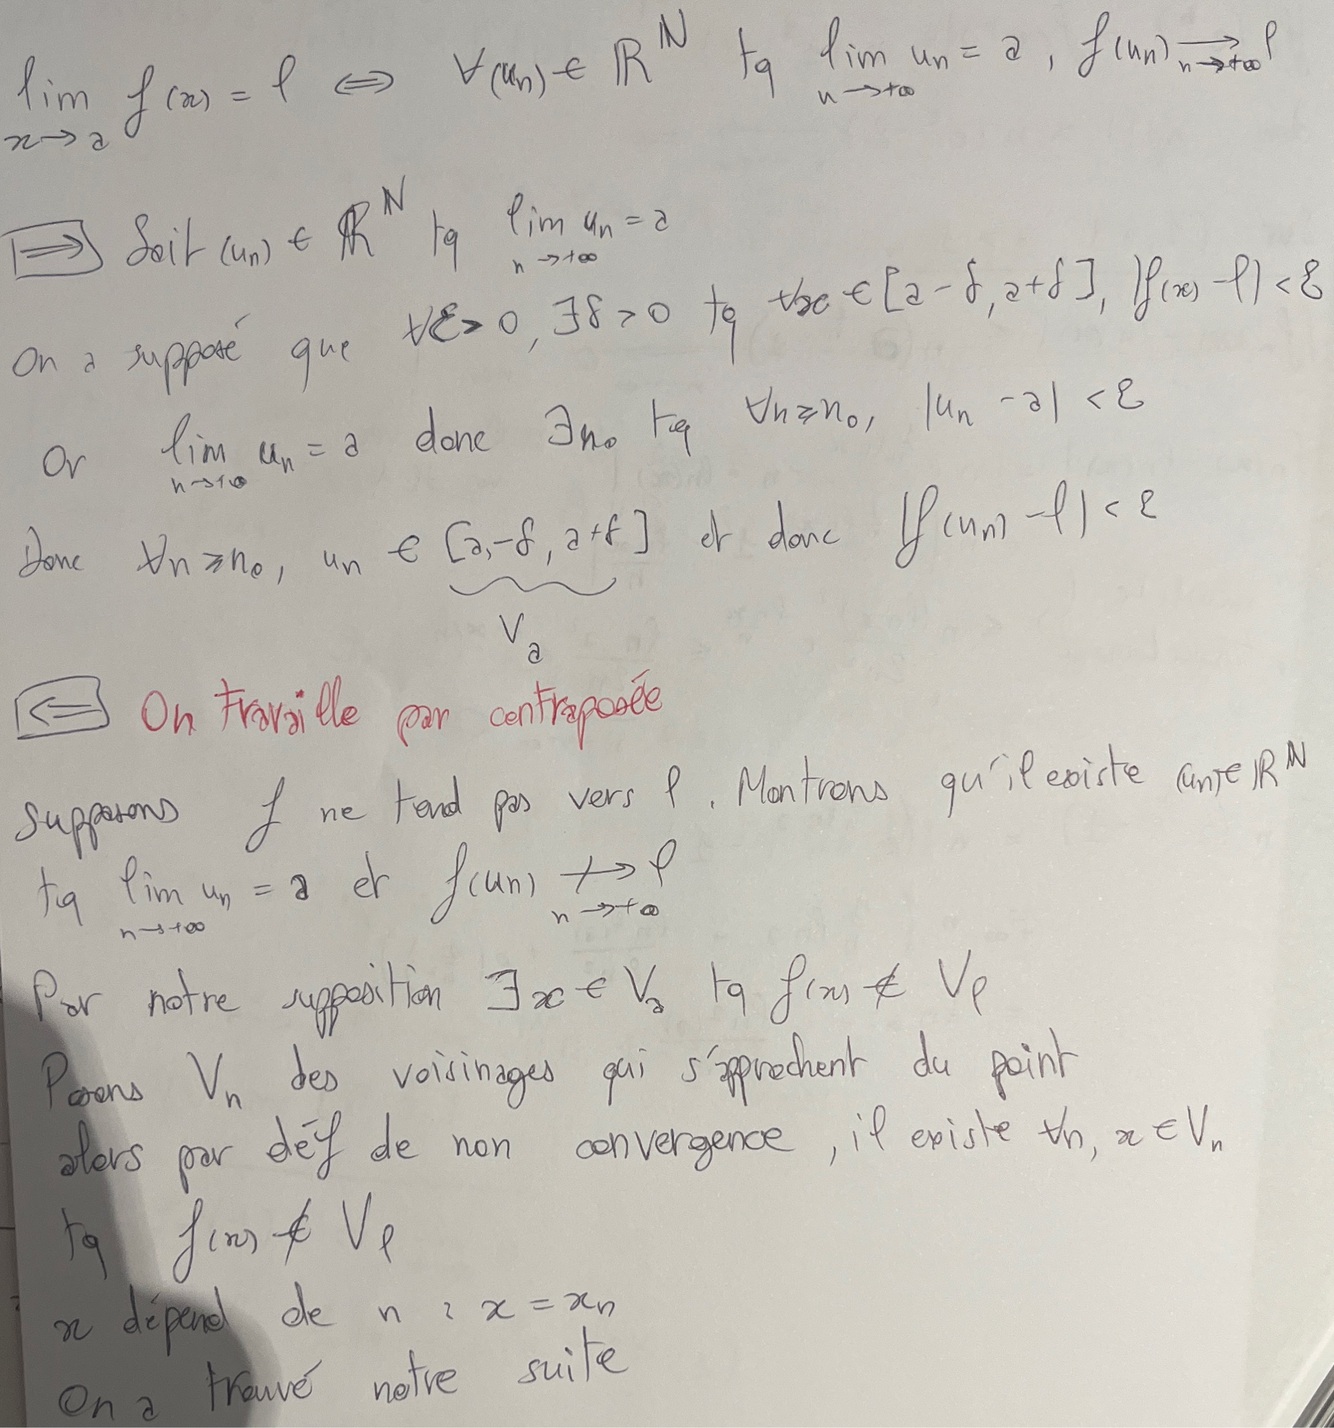 lim f(x) = l ⇔ ∀(un) ∈ ℝ^ℕ tq lim un = a, f(un) → l
x→a n→+∞ n→+∞
⇒ Soit (un) ∈ ℝ^ℕ tq lim un = a
n→+∞
On a supposé que ∀ε>0, ∃δ>0 tq ∀x ∈ [a-δ, a+δ], |f(x) - l| < ε
Or lim un = a donc ∃n₀ tq ∀n⩾n₀, |un - a| < ε
n→+∞
Donc ∀n⩾n₀, un ∈ [a-δ, a+δ] et donc |f(un) - l| < ε
Va
⇐ On travaille par contraposée
Supposons f ne tend pas vers l. Montrons qu'il existe (un)∈ℝ^ℕ
tq lim un = a et f(un) ↛ l
n→+∞ n→+∞
Par notre supposition ∃x ∈ Va tq f(x) ∉ Vl
Posons Vn des voisinages qui s'approchent du point
alors par déf de non convergence, il existe ∀n, x ∈ Vn
tq f(x) ∉ Vl
x dépend de n : x = xn
On a trouvé notre suite